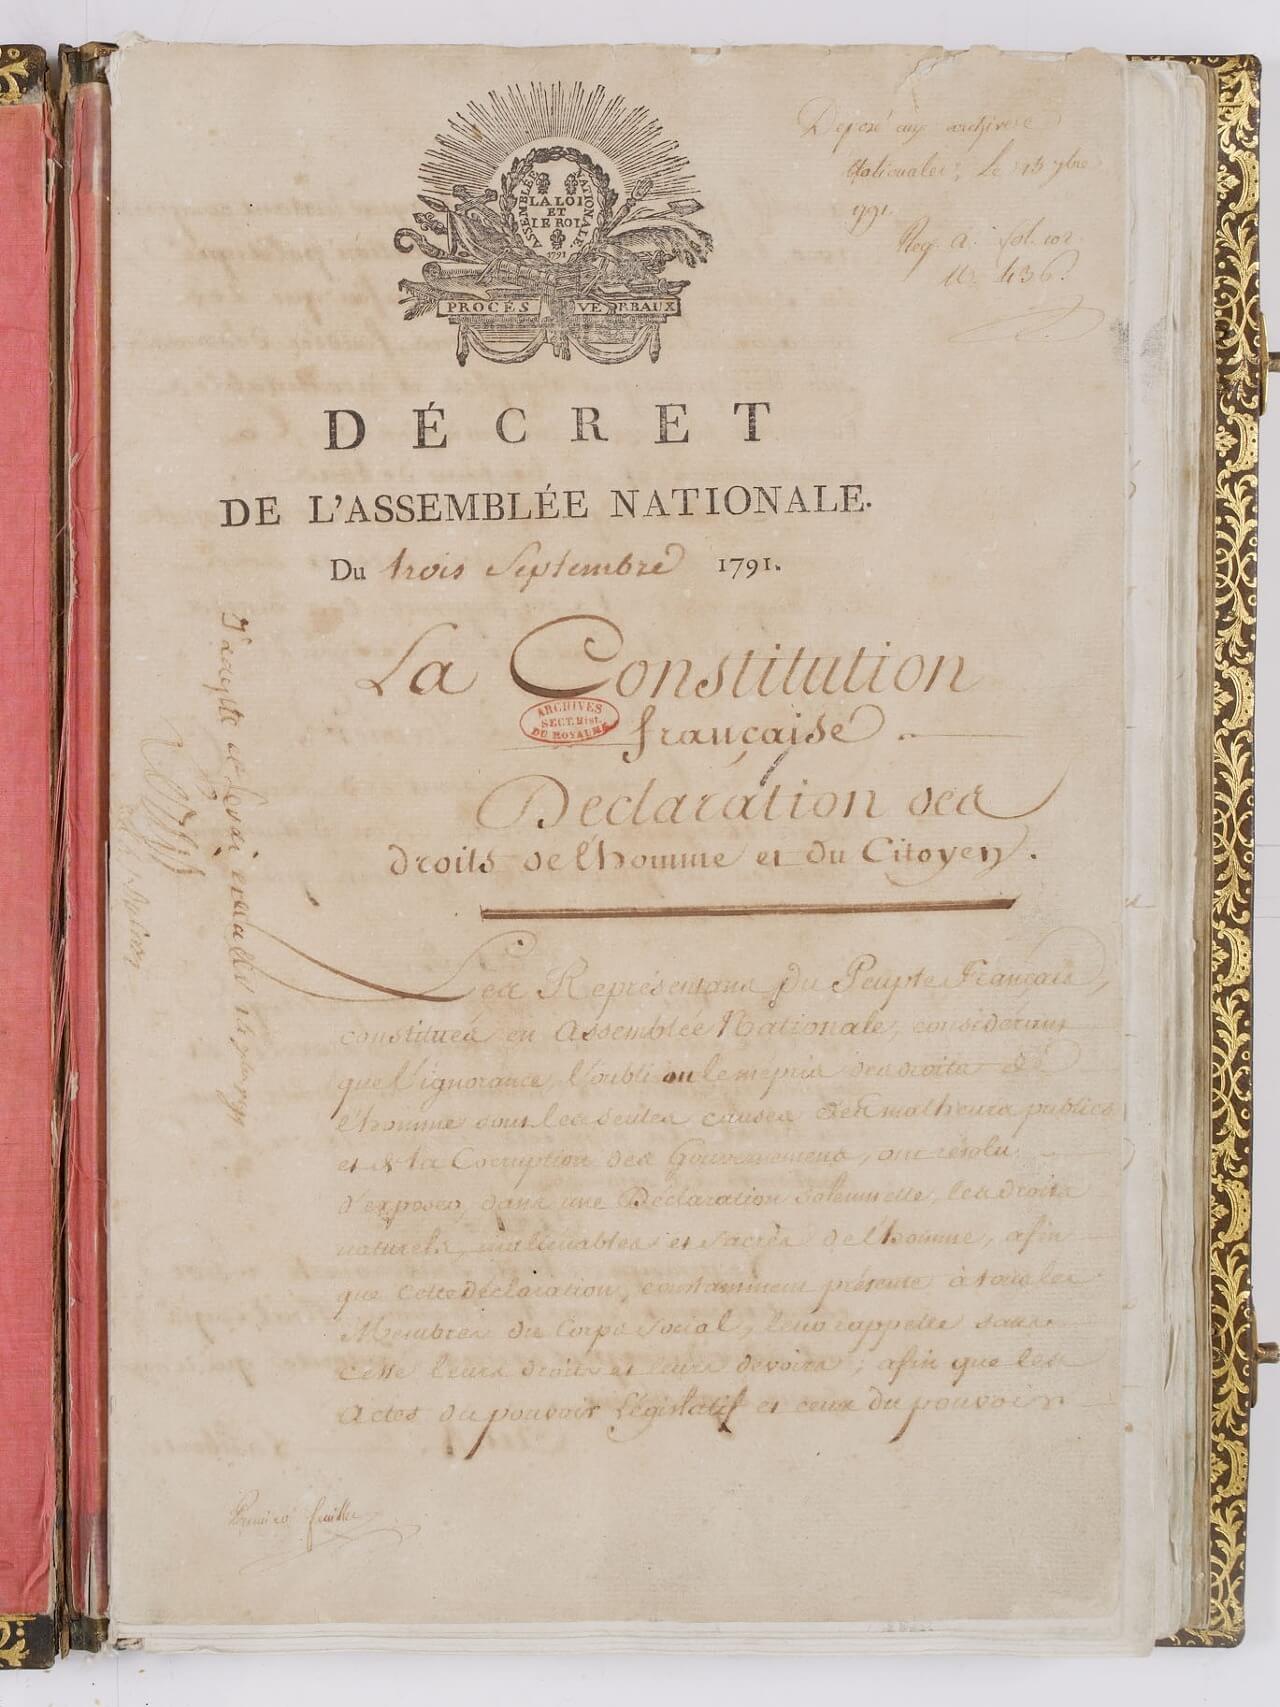 ASSEMBLÉE NATIONALE.
LA LOI
ET
LE ROI
1791
PROCÈS VERBAUX
Déposé aux archives
Nationales, le 15 7bre
1791.
Reg. A. fol. 102.
N. 436.
DÉCRET
DE L'ASSEMBLÉE NATIONALE.
Du trois Septembre 1791.
La Constitution
française.
ARCHIVES
SECT. Hist.
DU ROYAUME
Déclaration des
droits de l'homme et du Citoyen.
Les Représentans du Peuple Français,
constitués en Assemblée Nationale, considérant
que l'ignorance, l'oubli ou le mépris des droits de
l'homme sont les seules causes des malheurs publics
et de la Corruption des Gouvernemens, ont résolu
d'exposer, dans une Déclaration solemnelle, les droits
naturels, inaliénables et sacrés de l'homme, afin
que cette déclaration, constamment présente à tous les
Membres du Corps Social, leur rappelle sans
cesse leurs droits et leurs devoirs; afin que les
Actes du pouvoir Législatif et ceux du pouvoir
J'accepte et ferai exécuter 14 7bre 1791
Louis
Premier feuillet